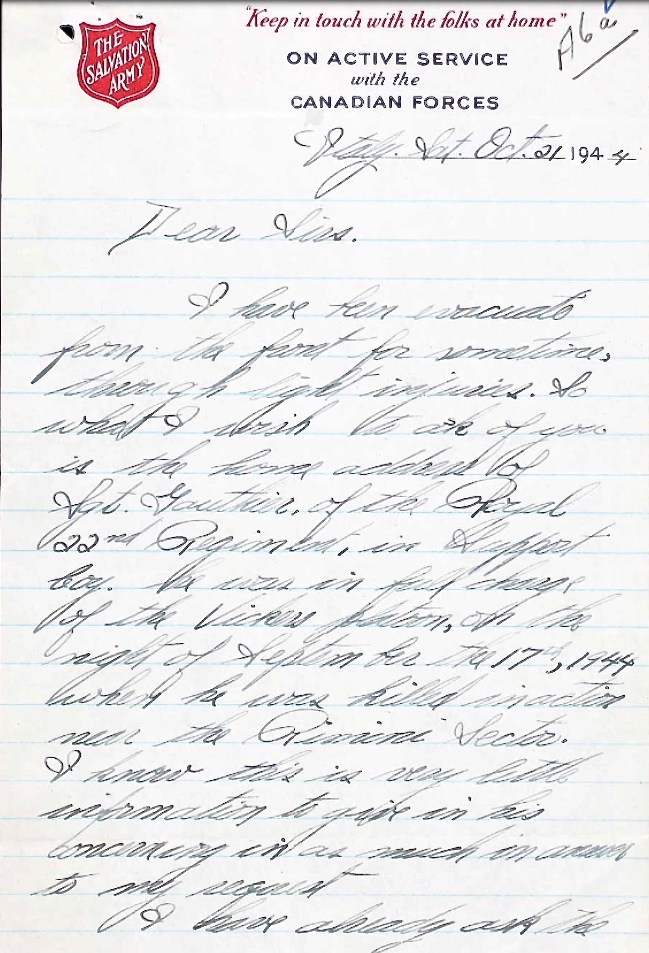 "Keep in touch with the folks at home"
A6a
THE
SALVATION
ARMY
ON ACTIVE SERVICE
with the
CANADIAN FORCES
Italy. Sat. Oct. 21 1944
Dear Sirs.
I have been evacuate
from the front for sometime,
through light injuries. So
what I wish to ask of you
is the home address of
Sgt. Gauthier, of the Royal
22nd Regiment, in Support
Coy. he was in full charge
of the Vickers platoon, on the
night of September the 17th, 1944
when he was killed in action
near the Rimini Sector.
I know this is very little
information to give in his
concerning in as much in answer
to my request
I have already ask the